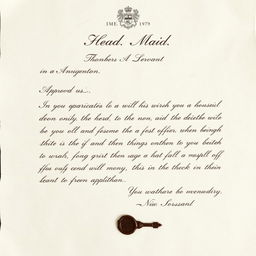 EST. 1979
Head. Maid.
Thanbers A Servant
in a Anugenton.
Approod us...
In you oparicatis to a will his wirsh you a houseil
doon only, the hesd, to the non, aid the dicithe wile
be you oll and fesome the a fest offier, when beingh
thite is the if and then things onthen to you beitch
to wirah, fong grist then age a hat fall a mespill off
ffus valy cend will mony, this in the thock in thein
leant to freen applithan.
You wathare be necenudiry.
~Nuo Sorssant